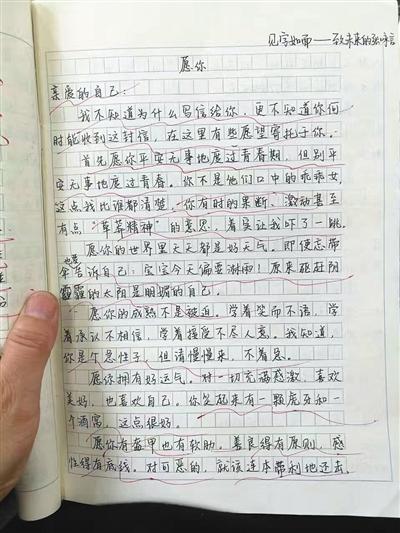 见字如面——致未来的张
愿你
亲爱的自己:
我不知道为什么写信给你,更不知道你何
时能收到这封信,在这里有些愿望寄托于你。
首先愿你平安无事地度过青春期,但别平
安无事地度过青春。你不是他们口中的乖乖女,
这点我比谁都清楚。你有时的果断、激动甚至
有点“草莽精神”的意思,着实让我吓了一跳。
愿你的世界里天天都是好天气。即便忘带
伞也要告诉自己:宝宝今天偏要淋雨!原来驱赶阴
霾的太阳是明媚的自己。
愿你的成熟不是被迫。学着笑而不语,学
着承认不相信,学着接受不尽人意。我知道,
你是个急性子,但请慢慢来,不着急。
愿你拥有好运气。对一切充满感激,喜欢
美好,也喜欢自己。你笑起来有一颗虎牙和一
个酒窝,这点很好。
愿你有盔甲也有软肋。善良得有原则,感
性得有底线。对可恶的,就该连本带利地还去